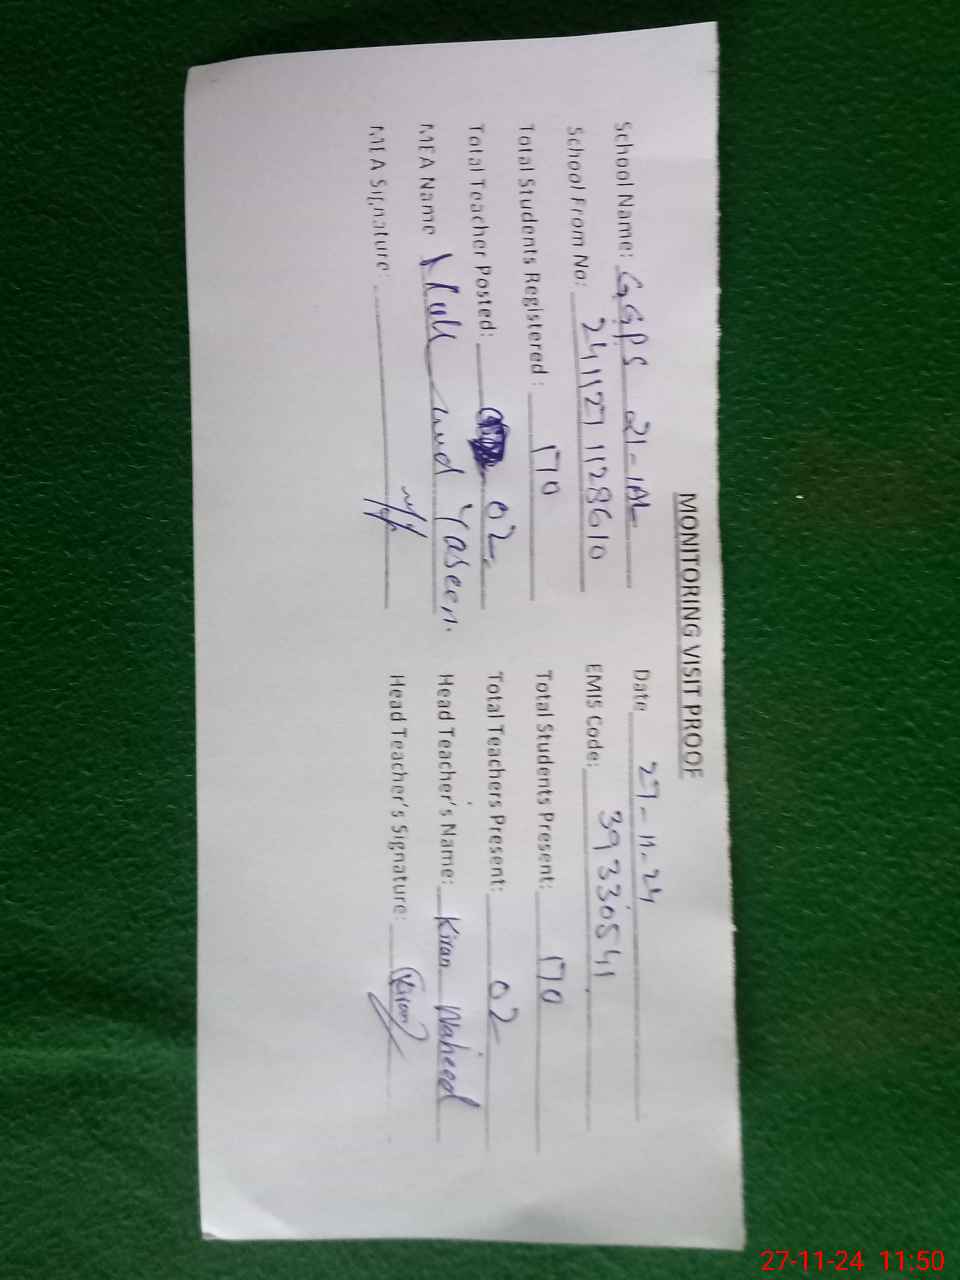 MONITORING VISIT PROOF
School Name: GGPS 21-1AL Date 27-11-24
School From No: 241127 1128610 EMIS Code: 39330541
Total Students Registered : 170 Total Students Present: 170
Total Teacher Posted: 02 Total Teachers Present: 02
MEA Name Yaseen. Head Teacher's Name: Kiran Naheed
MEA Signature: Head Teacher's Signature: Kiran
27-11-24 11:50